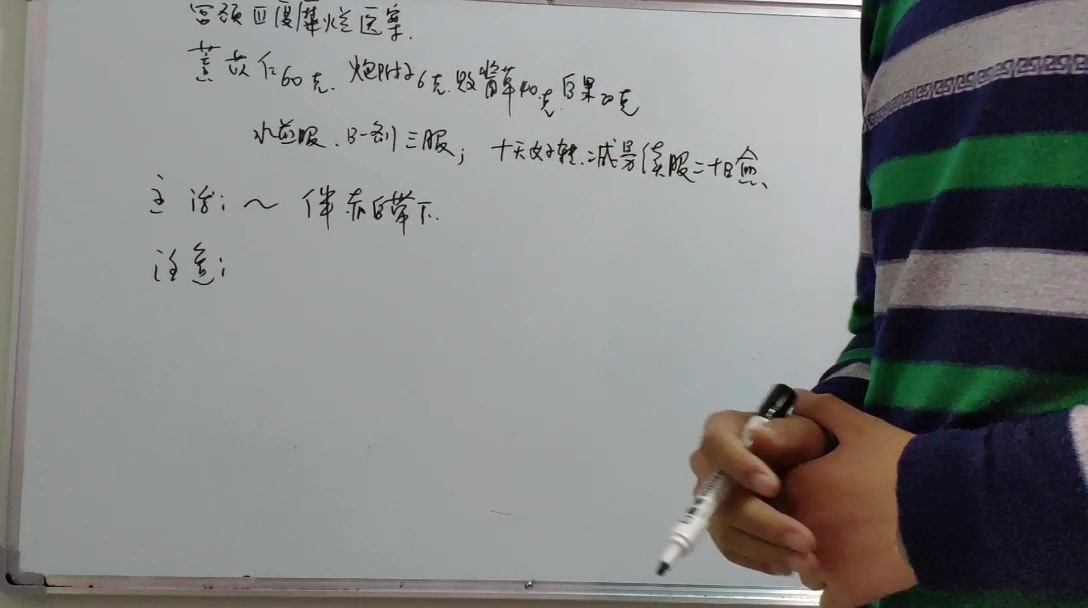 宫颈Ⅲ度糜烂医案.
薏苡仁60克.炮附子6克.败酱草40克.白果20克
水煎服、日一剂三服；十天好转.减量续服二十日愈、
主治：～伴赤白带下.
注意：